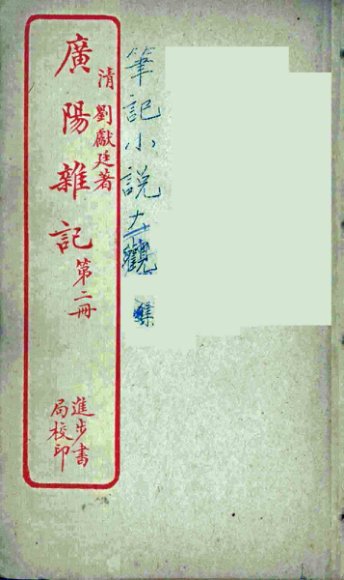 筆記小説大觀
集
清 劉獻廷著
廣陽雜記 第二冊
進步書
局校印